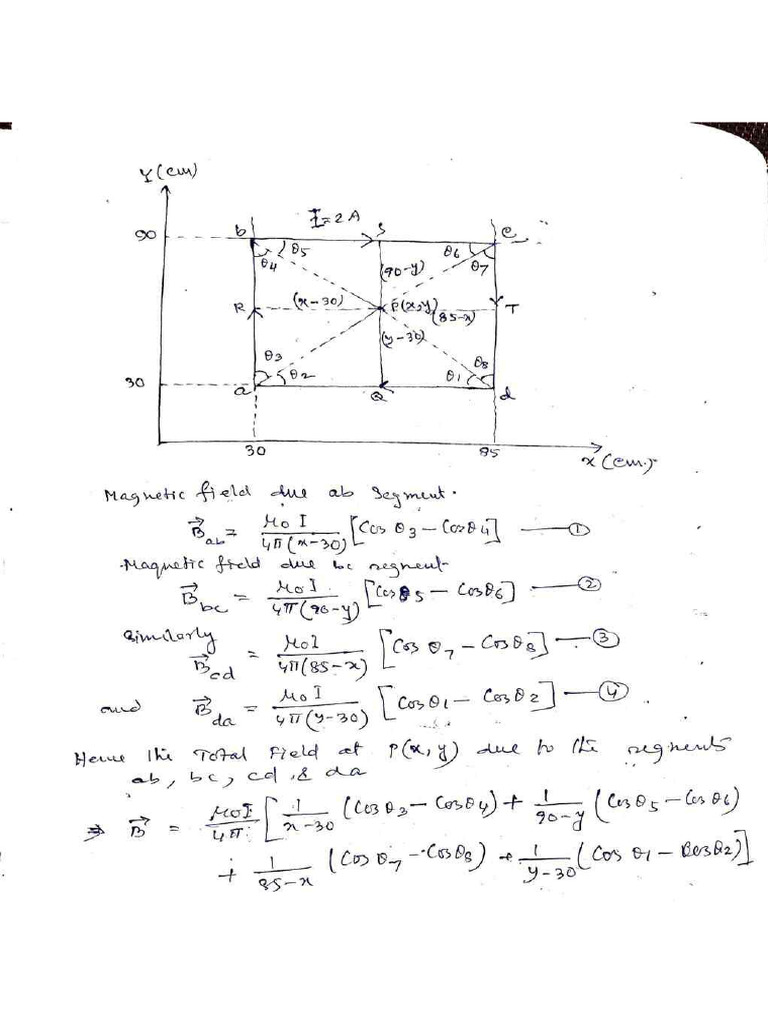 Y (cm)
I = 2 A
90
b
S
c
θ5
θ6
θ4
θ7
(90-y)
R
(x-30)
P(x,y)
(85-x)
T
(y-30)
θ3
θ8
30
a
θ2
Q
θ1
d
30
85
x (cm.)
Magnetic field due ab segment.
B⃗ab = μ0 I / 4π(x-30) [Cos θ3 - Cos θ4] —— ①
Magnetic field due bc segment
B⃗bc = μ0 I / 4π(90-y) [Cos θ5 - Cos θ6] —— ②
Similarly
B⃗cd = μ0 I / 4π(85-x) [Cos θ7 - Cos θ8] —— ③
and B⃗da = μ0 I / 4π(y-30) [Cos θ1 - Cos θ2] —— ④
Hence the Total Field at P(x,y) due to the segments
ab, bc, cd, & da
⇒ B⃗ = μ0 I / 4π [ 1 / x-30 (Cos θ3 - Cos θ4) + 1 / 90-y (Cos θ5 - Cos θ6)
+ 1 / 85-x (Cos θ7 - Cos θ8) + 1 / y-30 (Cos θ1 - Cos θ2)]